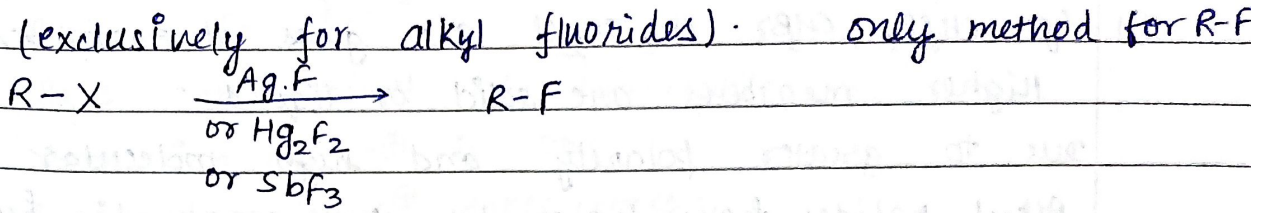 (exclusively for alkyl fluorides). only method for R-F
R-X Ag.F → R-F
or Hg₂F₂
or SbF₃